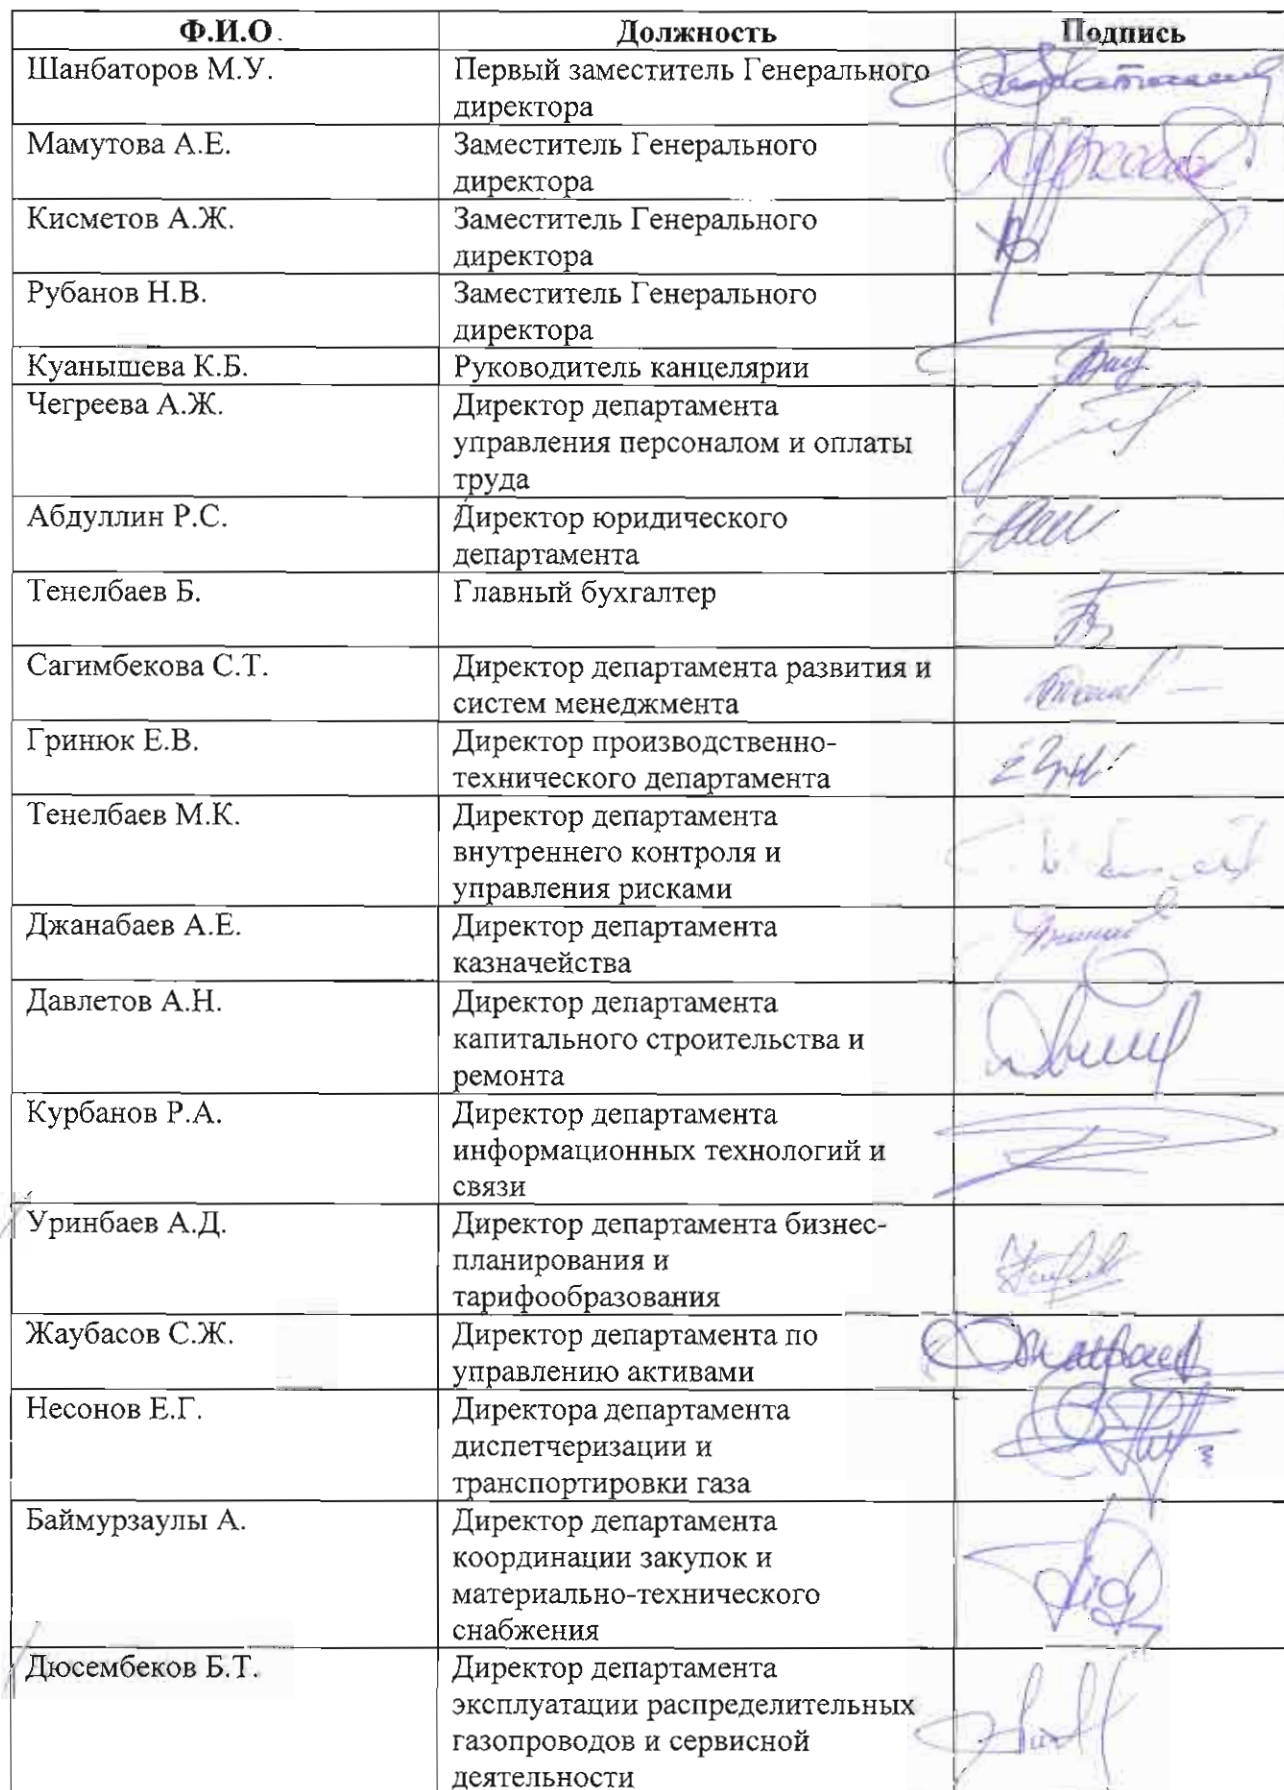 Ф.И.О. Должность Подпись
Шанбаторов М.У. Первый заместитель Генерального
директора
Мамутова А.Е. Заместитель Генерального
директора
Кисметов А.Ж. Заместитель Генерального
директора
Рубанов Н.В. Заместитель Генерального
директора
Куанышева К.Б. Руководитель канцелярии
Чегреева А.Ж. Директор департамента
управления персоналом и оплаты
труда
Абдуллин Р.С. Директор юридического
департамента
Тенелбаев Б. Главный бухгалтер
Сагимбекова С.Т. Директор департамента развития и
систем менеджмента
Гринюк Е.В. Директор производственно-
технического департамента
Тенелбаев М.К. Директор департамента
внутреннего контроля и
управления рисками
Джанабаев А.Е. Директор департамента
казначейства
Давлетов А.Н. Директор департамента
капитального строительства и
ремонта
Курбанов Р.А. Директор департамента
информационных технологий и
связи
Уринбаев А.Д. Директор департамента бизнес-
планирования и
тарифообразования
Жаубасов С.Ж. Директор департамента по
управлению активами
Несонов Е.Г. Директора департамента
диспетчеризации и
транспортировки газа
Баймурзаулы А. Директор департамента
координации закупок и
материально-технического
снабжения
Дюсембеков Б.Т. Директор департамента
эксплуатации распределительных
газопроводов и сервисной
деятельности